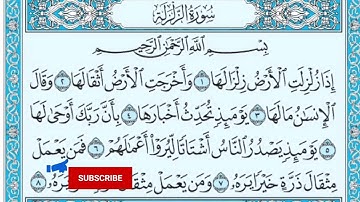 سُورَةُ الزَّلْزَلَةِ
بِسْمِ اللَّهِ الرَّحْمَٰنِ الرَّحِيمِ
إِذَا زُلْزِلَتِ الْأَرْضُ زِلْزَالَهَا ١ وَأَخْرَجَتِ الْأَرْضُ أَثْقَالَهَا ٢ وَقَالَ
الْإِنسَٰنُ مَا لَهَا ٣ يَوْمَئِذٍ تُحَدِّثُ أَخْبَارَهَا ٤ بِأَنَّ رَبَّكَ أَوْحَىٰ لَهَا
٥ يَوْمَئِذٍ يَصْدُرُ النَّاسُ أَشْتَاتًا لِّيُرَوْا أَعْمَٰلَهُمْ ٦ فَمَن يَعْمَلْ
مِثْقَالَ ذَرَّةٍ خَيْرًا يَرَهُ ٧ وَمَن يَعْمَلْ مِثْقَالَ يَرَهُ ٨
SUBSCRIBE